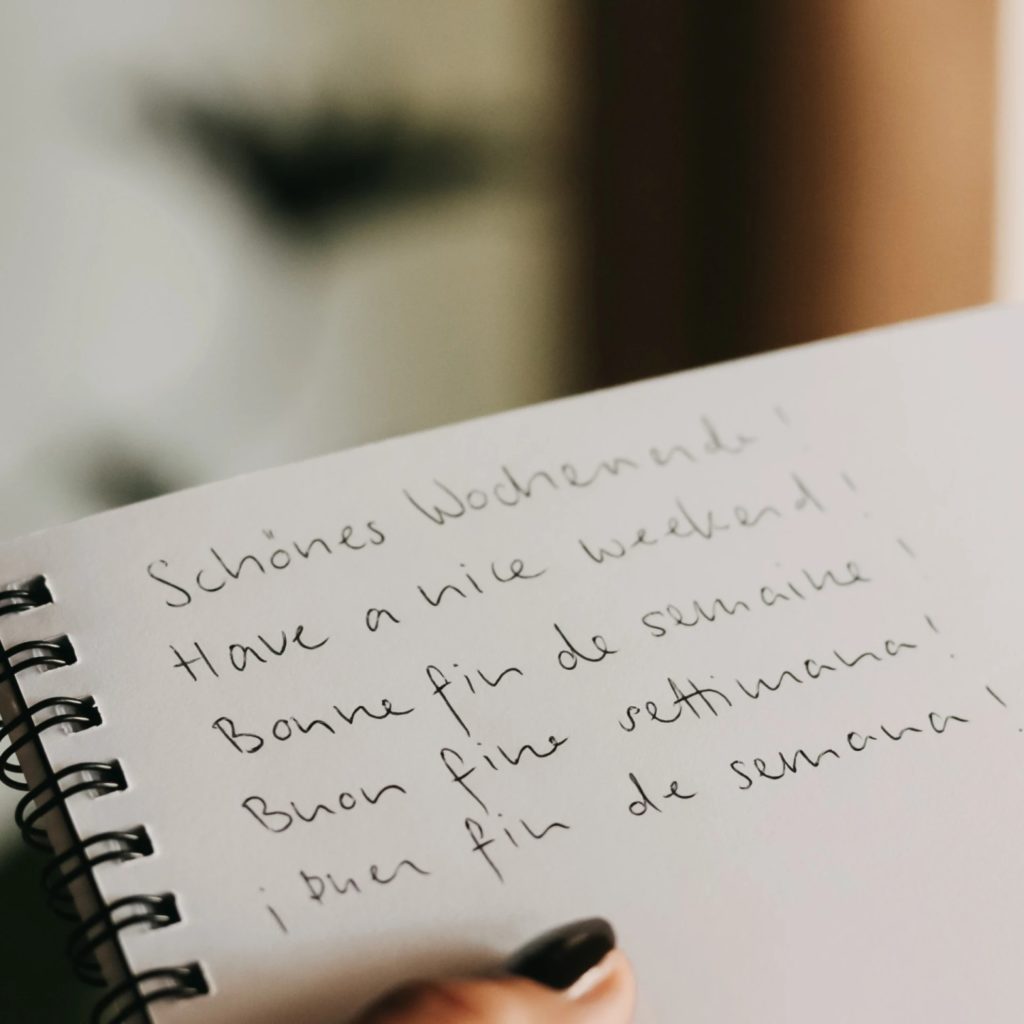 Schönes Wochenende!
Have a nice weekend!
Bonne fin de semaine!
Buon fine settimana!
¡Buen fin de semana!